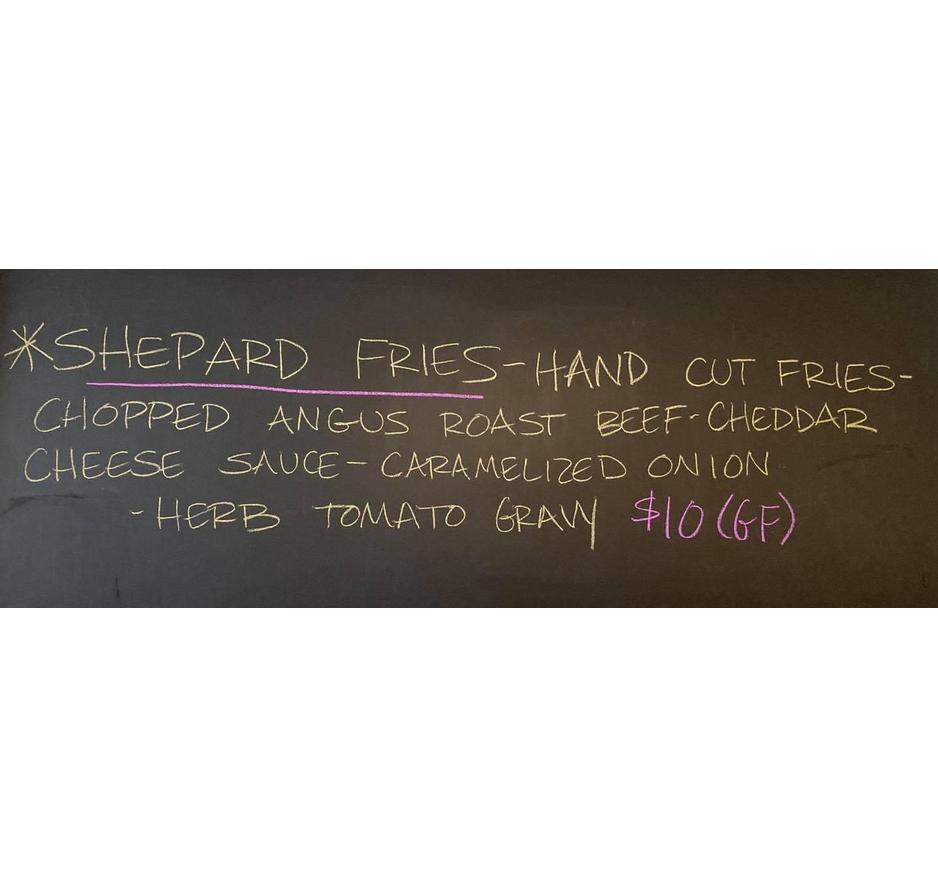 *SHEPARD FRIES-HAND CUT FRIES-
CHOPPED ANGUS ROAST BEEF-CHEDDAR
CHEESE SAUCE-CARAMELIZED ONION
-HERB TOMATO GRAVY $10 (GF)